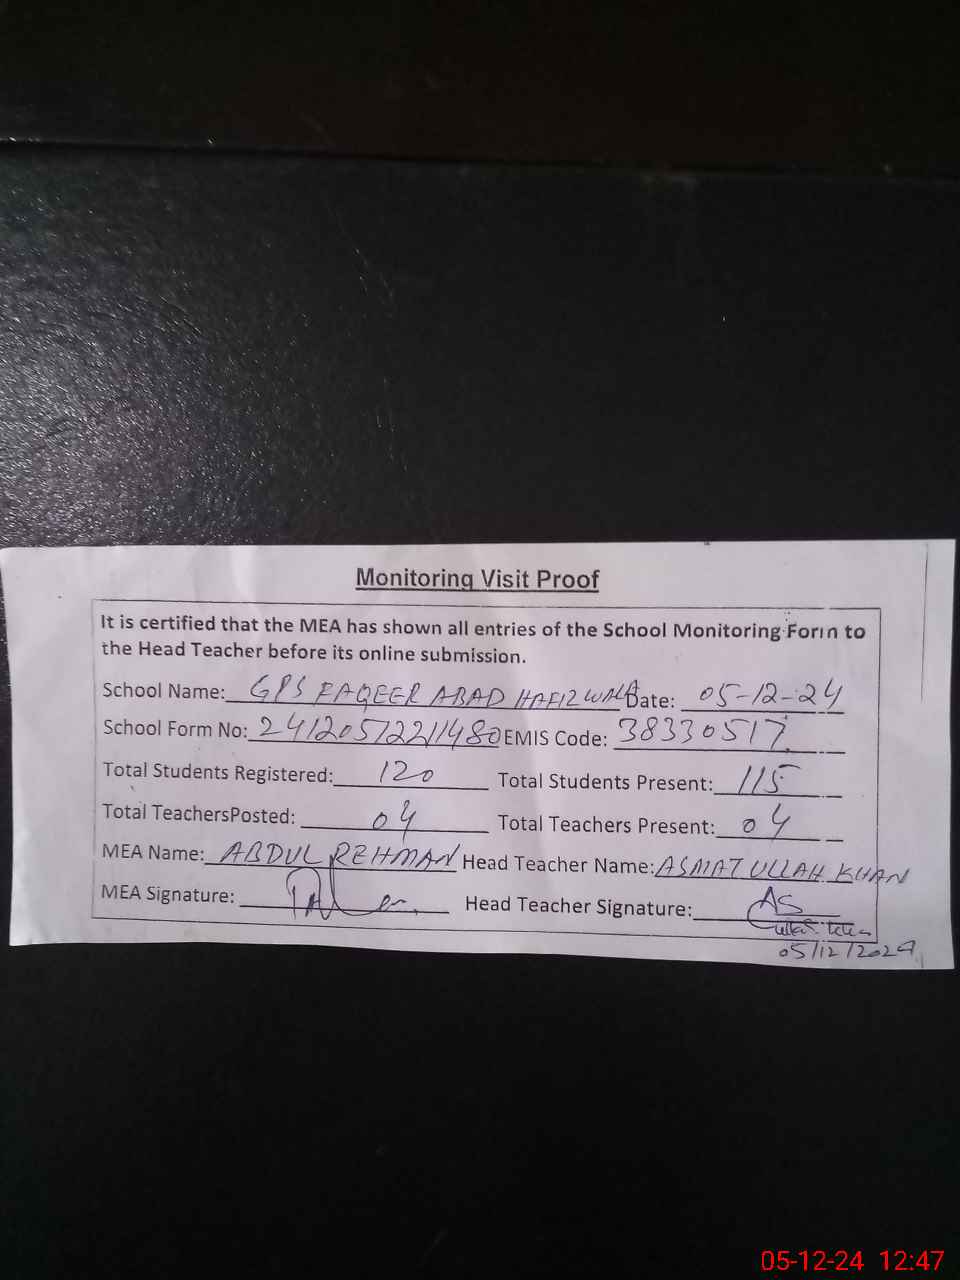 Monitoring Visit Proof
It is certified that the MEA has shown all entries of the School Monitoring Form to
the Head Teacher before its online submission.
School Name: GPS FAQEER ABAD HAFIZ WALA Date: 05-12-24
School Form No: 241205122211480 EMIS Code: 38330517
Total Students Registered: 120 Total Students Present: 115
Total TeachersPosted: 04 Total Teachers Present: 04
MEA Name: ABDUL REHMAN Head Teacher Name: ASMAT ULLAH KHAN
MEA Signature: Head Teacher Signature: AS
05/12/2024
05-12-24 12:47